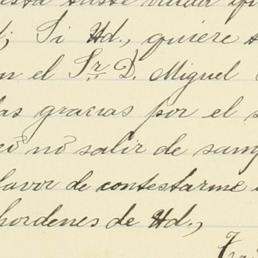 ; Si Ud., quiere s
n el Sr. D. Miguel
as gracias por el s
no salir de sam
favor de contestarme
hordenes de Ud.,